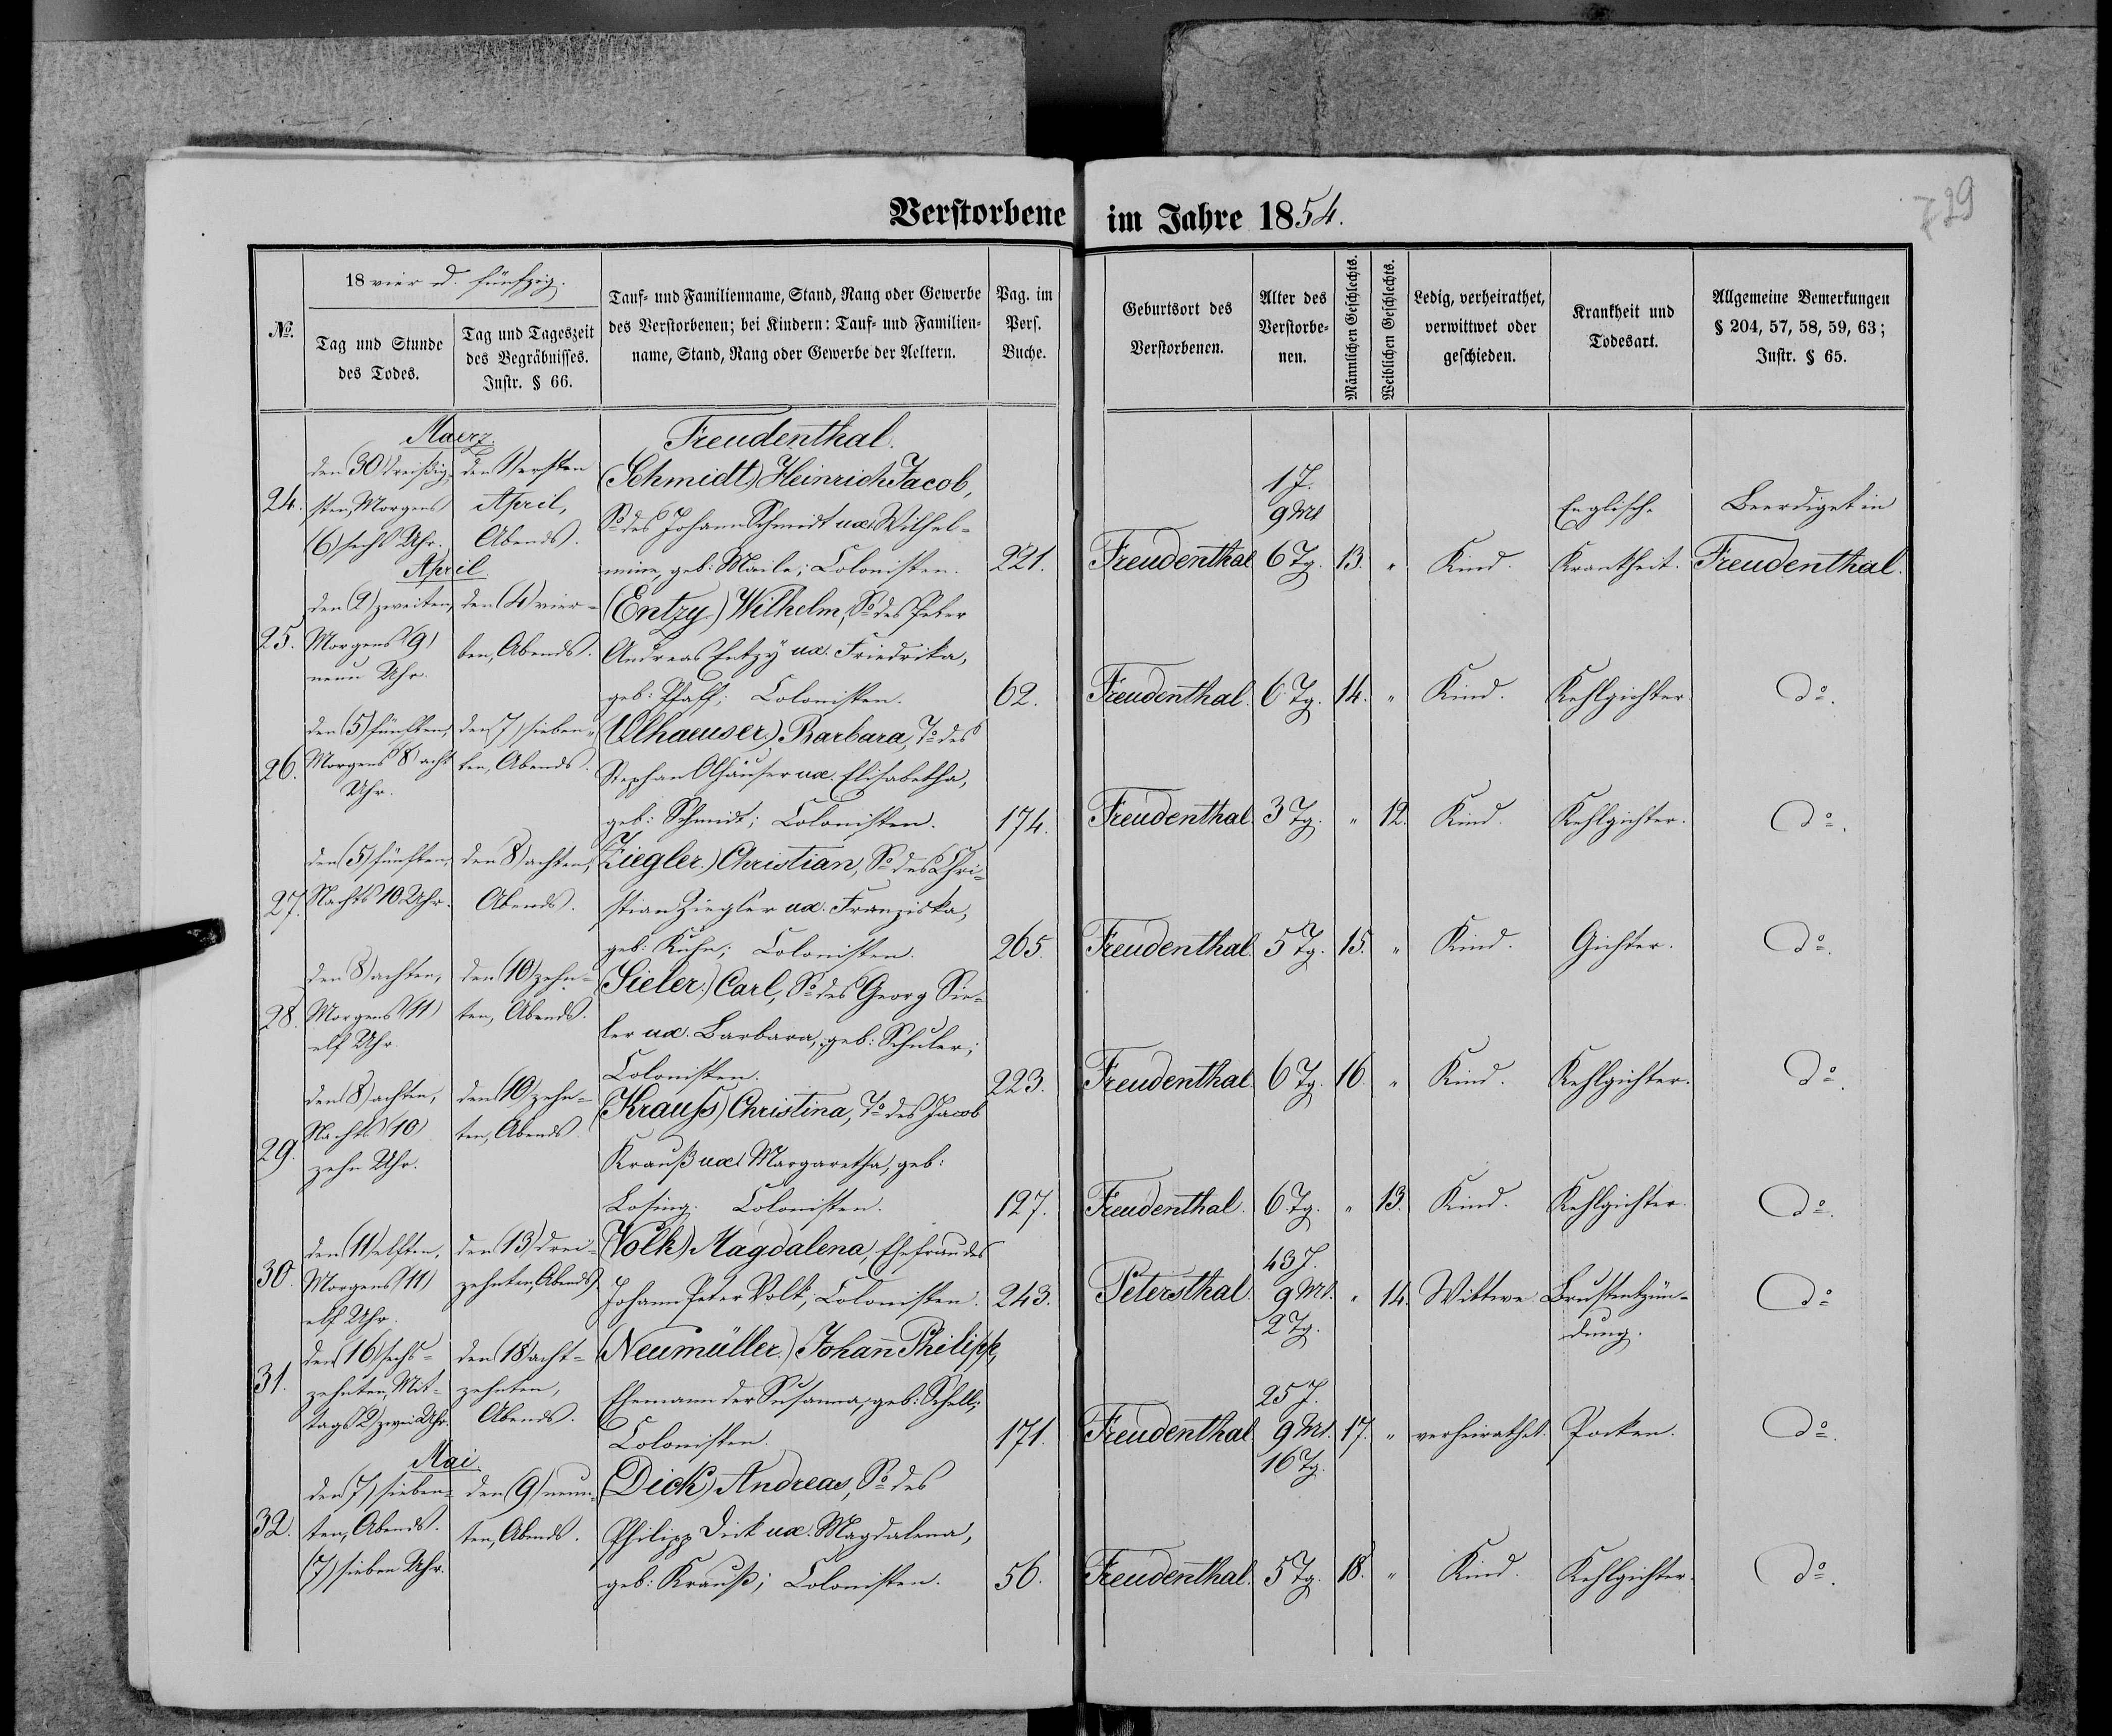 729
Verstorbene im Jahre 1854.
№.
18 vier u. fünfzig.
Tag und Stunde
des Todes.
Tag und Tageszeit
des Begräbnisses.
Instr. § 66.
Tauf- und Familienname, Stand, Rang oder Gewerbe
des Verstorbenen; bei Kindern: Tauf- und Familien-
name, Stand, Rang oder Gewerbe der Aeltern.
Pag. im
Pers.
Buche.
Geburtsort des
Verstorbenen.
Alter des
Verstorbe-
nen.
Männlichen Geschlechts.
Weiblichen Geschlechts.
Ledig, verheirathet,
verwittwet oder
geschieden.
Krankheit und
Todesart.
Allgemeine Bemerkungen
§ 204, 57, 58, 59, 63;
Instr. § 65.
Maerz.
Freudenthal.
24.
den 30 dreißig-
sten, Morgens
(6) sechs Uhr.
den 1) ersten
April,
Abends.
(Schmidt) Heinrich Jacob,
So des Johann Schmidt ux. Wilhel-
mine, geb: Maile; Colonisten.
221.
Freudenthal
1 J.
9 Mt
6 Tg.
13.
"
Kind.
Englische
Krankheit.
Beerdiget in
Freudenthal.
April
25.
den 2) zweiten,
Morgens (9)
neun Uhr.
den (4) vier-
ten, Abends.
(Entzy) Wilhelm, So des Peter
Andreas Entzy ux. Friedrika,
geb: Pfaff; Colonisten.
62.
Freudenthal.
6 Tg.
14.
"
Kind.
Kehlgichter
do.
26.
den (5) fünften,
Morgens 8) acht
Uhr.
den 7) sieben-
ten, Abends.
(Ulhaeuser.) Barbara, To des
Stephan Olhäuser ux. Elisabetha,
geb: Schmidt; Colonisten.
174.
Freudenthal.
3 Tg.
"
12.
Kind.
Kehlgichter.
do.
27.
den (5) fünften,
Nachts 10 Uhr.
den 8) achten,
Abends.
(Ziegler.) Christian, So des Chri-
stian Ziegler ux. Franziska,
geb: Kuhn; Colonisten.
265.
Freudenthal.
5 Tg.
15.
"
Kind.
Gichter.
do.
28.
den 8) achten,
Morgens (11)
elf Uhr.
den (10) zehn-
ten, Abends.
(Sieler.) Carl, So des Georg Sie-
ler ux. Barbara, geb: Schuler;
Colonisten.
223.
Freudenthal
6 Tg.
16.
"
Kind.
Kehlgichter.
do.
29.
den 8) achten,
Nachts (10)
zehn Uhr.
den 10) zehn-
ten, Abends.
(Krauss) Christina, To des Jacob
Krauß ux. Margaretha, geb:
Losing. Colonisten.
127.
Freudenthal.
6 Tg.
"
13.
Kind.
Kehlgichter.
do.
30.
den (11) elften,
Morgens (11)
elf Uhr.
den 13) drei-
zehnten, Abends.
(Volk) Magdalena, Ehefrau des
Johann Peter Volk, Colonisten.
243.
Petersthal.
43 J.
9 Mt.
2 Tg.
"
14.
Wittwe.
Brustentzün-
dung.
do
31.
den 16) sechs-
zehnten, Mit-
tags 2) zwei Uhr.
den 18) acht-
zehnten,
Abends.
(Neumüller.) Johann Philipp,
Ehemann der Susanna, geb: Schell;
Colonisten.
171.
Freudenthal
25 J.
9 Mt.
16 Tg.
17.
"
verheirathet.
Pocken.
do.
Mai
32.
den 7) sieben-
ten, Abends.
(7) sieben Uhr.
den (9) neun-
ten, Abends.
(Dick) Andreas, So des
Philipp Dick ux. Magdalena,
geb: Krauß; Colonisten.
56.
Freudenthal.
5 Tg.
18.
"
Kind.
Kehlgichter.
do.